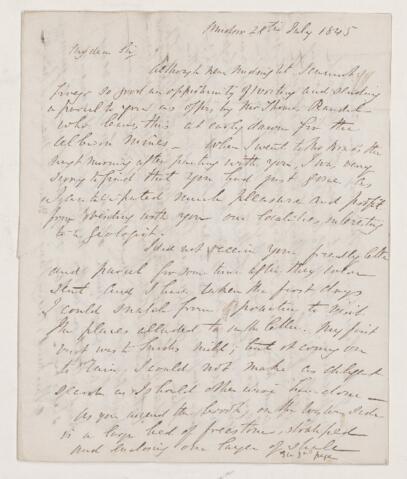 Windsor 28th July 1845
My dear Sir
Although near Midnight I cannot
forego so good an opportunity of writing and sending
a parcel to you as offers by Mr Thomas Randal
who leaves this at early dawn for the
Albion Mines – When I went to the
next morning after parting with you, I was very
sorry to find that you had just gone, as
I anticipated much pleasure and profit
from visiting with you our localities, interesting
to a Geologist.
I did not receive your friendly letter
and parcel for some time after they were
sent and I have taken the first days
I could snatch from my practice, to visit
the places alluded to in the letter. My first
visit was to mills; but it coming on
to rain, I could not make as diligent
search as I should otherwise have done –
As you ascend the brook, on the western side
is a large bed of freestone,
and enclosing one layer of shale